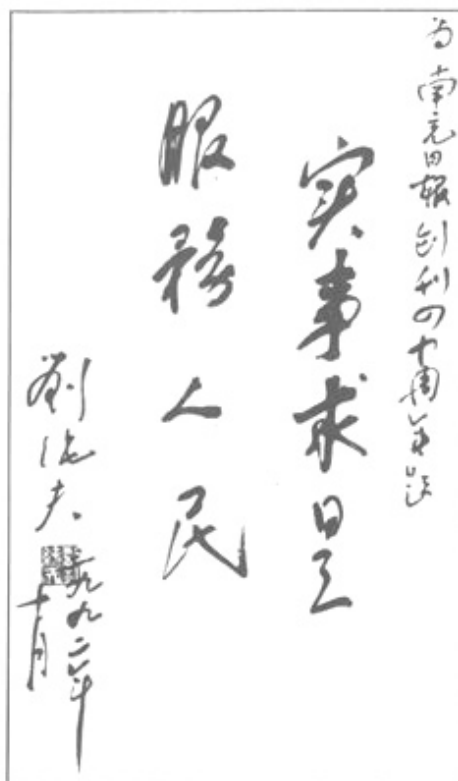 为南充日报创刊四十周年题
实事求是
服務人民
劉海夫
一九九二年
十月